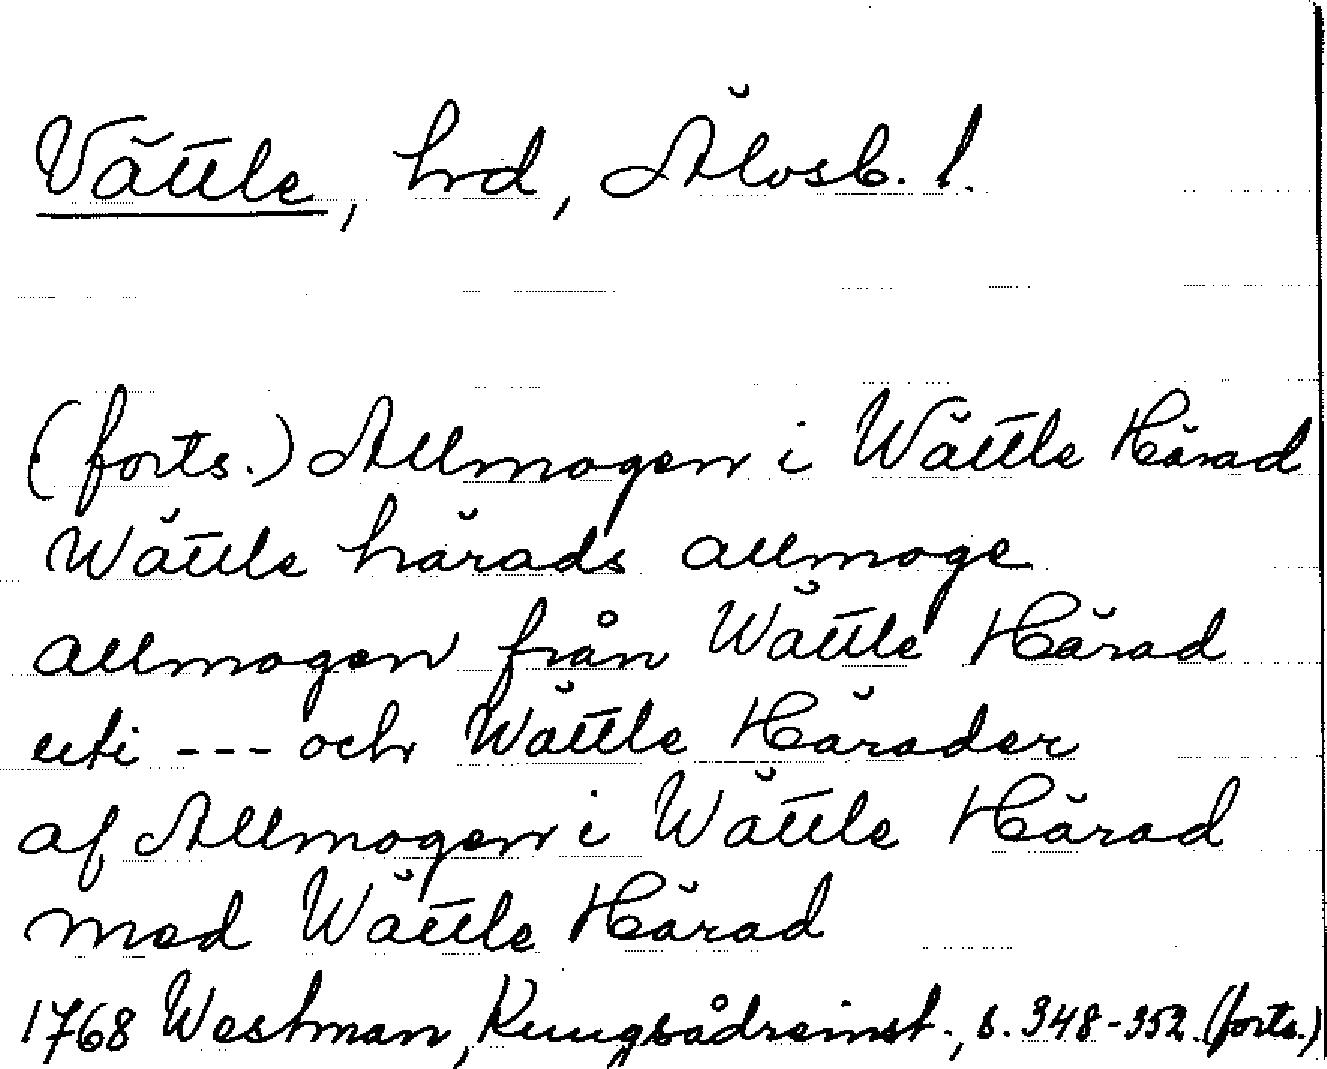 Vättle, hrd, Älvsb. l.
(forts.) Allmogen i Wättle Härad
Wättle härads allmoge
allmogen från Wättle Härad
uti --- och Wättle Härader
af Allmogen i Wättle Härad
med Wättle Härad
1768 Westman, Kungsådreinst., s. 348-352. (forts.)